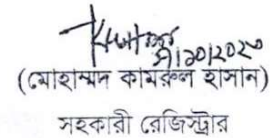 ৭/১০/২০২০
(মোহাম্মদ কামরুল হাসান)
সহকারী রেজিস্ট্রার